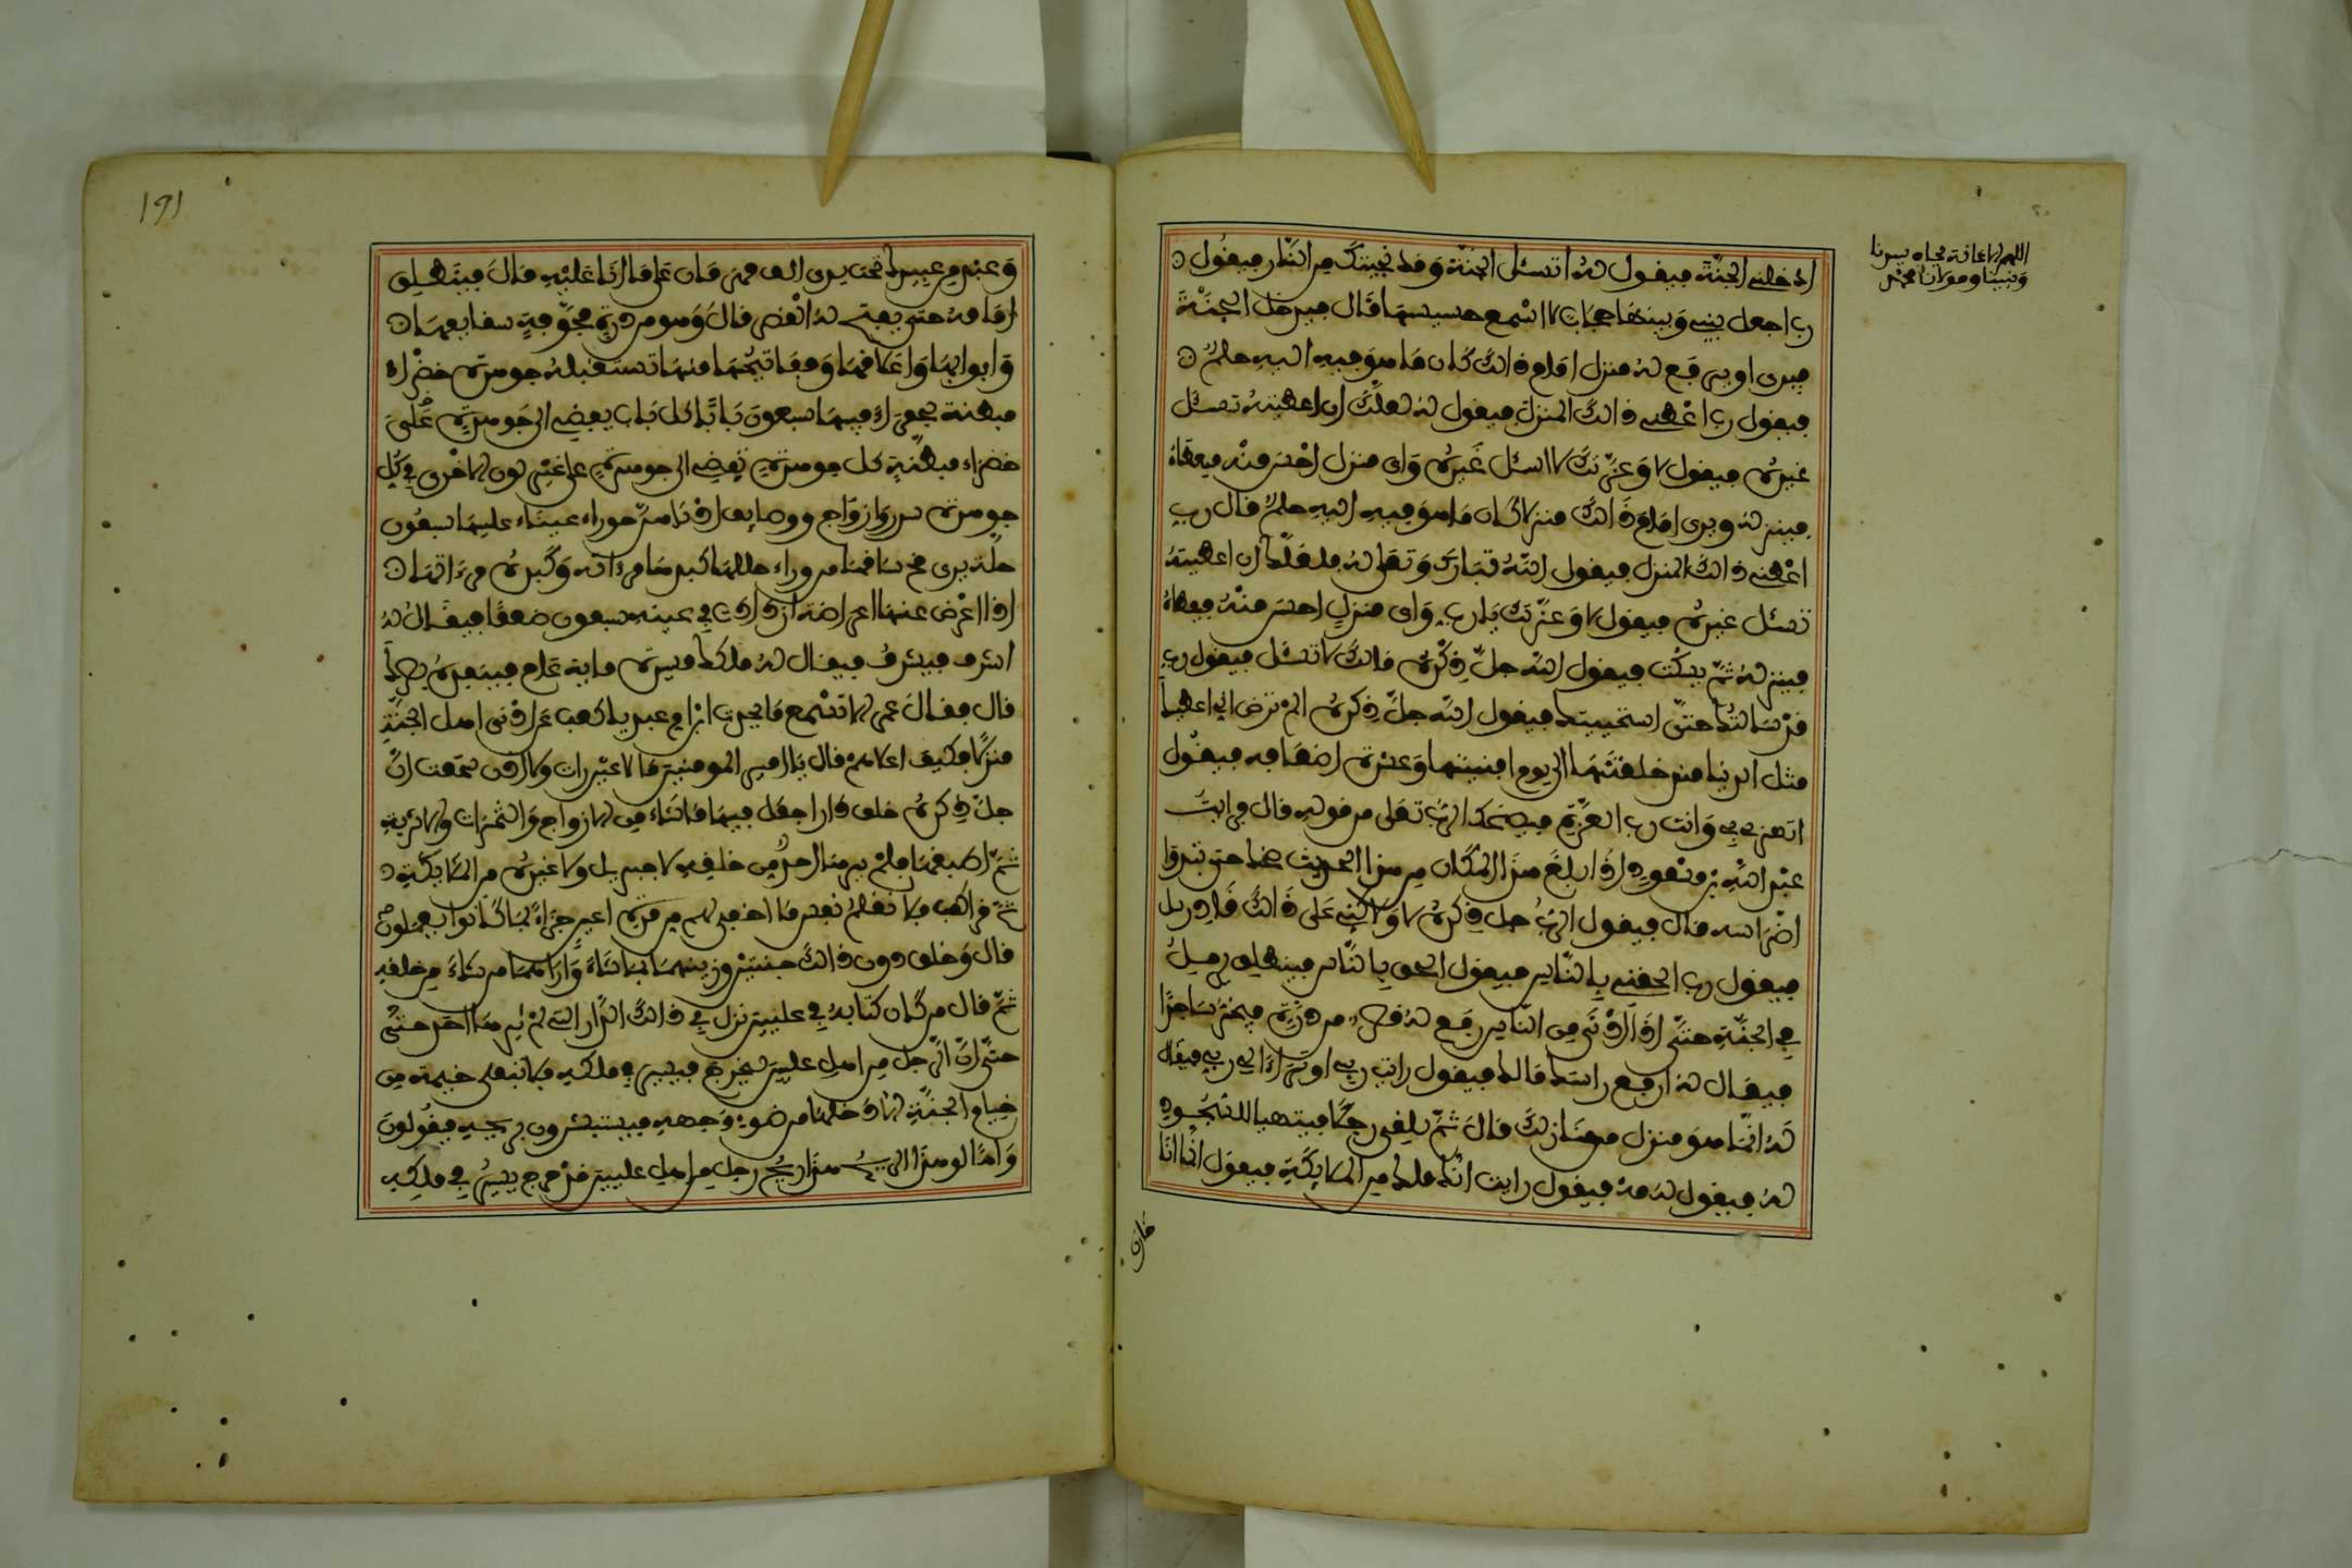 اللهم الاعانة بجاه سيدنا
ونبينا ومولانا محمد
ادخلني الجنّة فيقول لهُ اتسئل الجنّة وَقد نجيتكَ من النّار فيقُول
رب اجعل بيني وَبينهَا حجَابا لا اسْمع حسيسهَا قَال فيدخل الجنّةَ
فيرى او يرفَع لهُ منزل امَام ذَالكَ كَان مَا هوَ فيهِ اليهِ حلمٌ
فيقول رب اعْطني ذالكَ المنزل فيقول لهُ لعلّكَ ان اعطيتهُ تسئل
غيرهُ فيقول لا وَعزّتكَ لا اسئل غَيرهُ وَاى منزل احْسن منْه فيعطاهُ
فينزلهُ ويرى امَام ذَالكَ منزلا كان مَا هوَ فيهِ اليهِ حلمٌ قال ربِ
اعْطني ذالكَ المنزل فيقول اللّهُ تبَارك وَتعَالى لهُ فلعَلّك ان اعطيتهُ
تسئل غيرهُ فيقول لا وَعزّتكَ يَا ربِ وَاى منزلٍ احسن منْهُ فيعطاهُ
فينزلهُ ثمّ يسكُت فيقول اللّه جلّ ذكْرهُ مَا لكَ لا تسْئل فيقول ربِ
قدْ سَالتُكَ حتّى استحييتك فيقول اللّه جلّ ذكرهُ الم ترضَ ان اعطيك
مثل الدنيا منذ خلقتهَا الى يوم افنيتها وَعشرة اضعَافه فيقُول
اتهزء بي وَانت رب العزّة فيضحك الرّبّ تعَلى من قولهِ قال فرايتُ
عبْد اللّهِ بن مسْعودٍ اذَا بلغَ هذَا المكَان من هذا الحديث ضحك حتى تبدوا
اضْرَاسه قال فيقول الربّ جل ذكرهُ لا وَلاكني عَلى ذَالكَ قَادر سل
فيقول رب الحقني بِالنّاس فيقول الحق بِالنّاس فينطلق يرملُ
في الجنّةِ حتّى اذَا دَنى منِ النّاس رفعَ لهُ قصر من درّةٍ فيخرّ سَاجدًا
فيقَال لهُ ارفع راسك مَا لك فيقول رايت ربي او ترَاءا لي ربي فيقَال
لهُ انّما هوَ منزل من منَازلكَ قالَ ثمّ يلقى رجُلا فيتهيا للسّجُودِ
لهُ فيقول لهُ مهْ فيقول رايت انّك ملك من الملايكَةِ فيقول انّما انَا
خازن
191
وَعبْد من عبيدك تحت يدى الف قهرمَان عَلى مَا انَا عَليْهِ قالَ فينطلِق
امَامهُ حتى يفتح لهُ القصر قالَ وَهو من درةٍ مجوّفةٍ سقايفهَا
وَابوابهَا وَاغلاقهَا وَمفاتيحُهَا منهَا تستقبلهُ جوهرة خضْراء
مبطنة بحمْراءَ فيهَا سبعونَ بَابًا كل بَاب يفضي الى جَوهرةٍ
خضرَاء مبطّنةٍ كل جوهرةٍ تفضي الى جوهرةٍ على غيْر لون الاخْرى في كلِ
جوهرة سرر وَازوَاج ووصايف ادْنَاهنّ حورَاء عينَاء عليهَا سبعُون
حلّة يرى مخ سَاقهَا من وراء حللهَا كبدهَا مرءاته وَكبدهُ مرءاتهَا
اذا اعْرضَ عنهَا اعراضة ازدادت في عينهِ سبعون ضعفًا فيقَال لهُ
اشرف فيشرفُ فيقال لهُ ملكك مسيرة ماية عَام فينفذهُ بصركَ
قال فقالَ عمر الا تسْمع مَا يحدث ابْن ام عبد يا كعب عَن ادْنى اهل الجنّةِ
منزلًا فكيفَ اعلاهمْ قال يَا امير المومنين مَا لا عيْن رات وَلا اذن سَمعت انّ
جلّ ذكرهُ خلق دَارا جعَل فيهَا مَا شَاء من الازواج وَالثّمرَات وَالاشربةِ
ثمّ اطبقهَا فلمْ يرهَا احدٌ من خلقِهِ لا جبريل ولا غيرهُ من الملايكةِ
ثمّ قرا كعب فلا تعْلمُ نفس مَا اخفي لهم من قرّة اعين جزاءً بمَا كَانوا يعملون
قال وَخلق دون ذالكَ جنتين وزينهمَا بمَا شَاءَ وَارَاهمَا من شَاءَ من خلقه
ثمّ قال من كَان كتَابهُ في عليين نزل في ذالكَ الدّار التى لمْ يرهَا احد حتى
حتّى انّ الرّجل من اهلِ عليين ليخرج فيسير في ملكهِ فلا تبقى خيمة من
خيام الجنّةِ الّا دَخلهَا من ضوءِ وَجههِ فيستبشرون بريحهِ فيقُولونَ
وَاهًا لهذَا الريح هذَا ريحُ رجلٍ من اهل عليين قدْ خرج يسيرُ في ملكِهِ